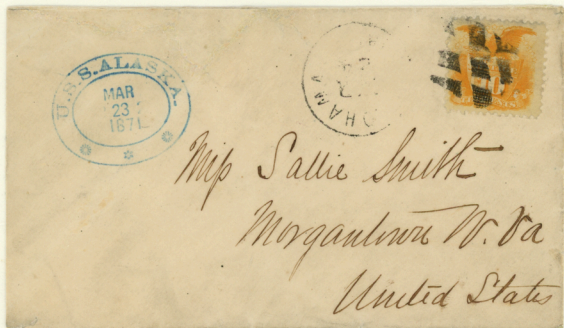 U.S.S. ALASKA.
MAR
23
1871
OHAMA
Miss Sallie Smith
Morgantown W. Va
United States